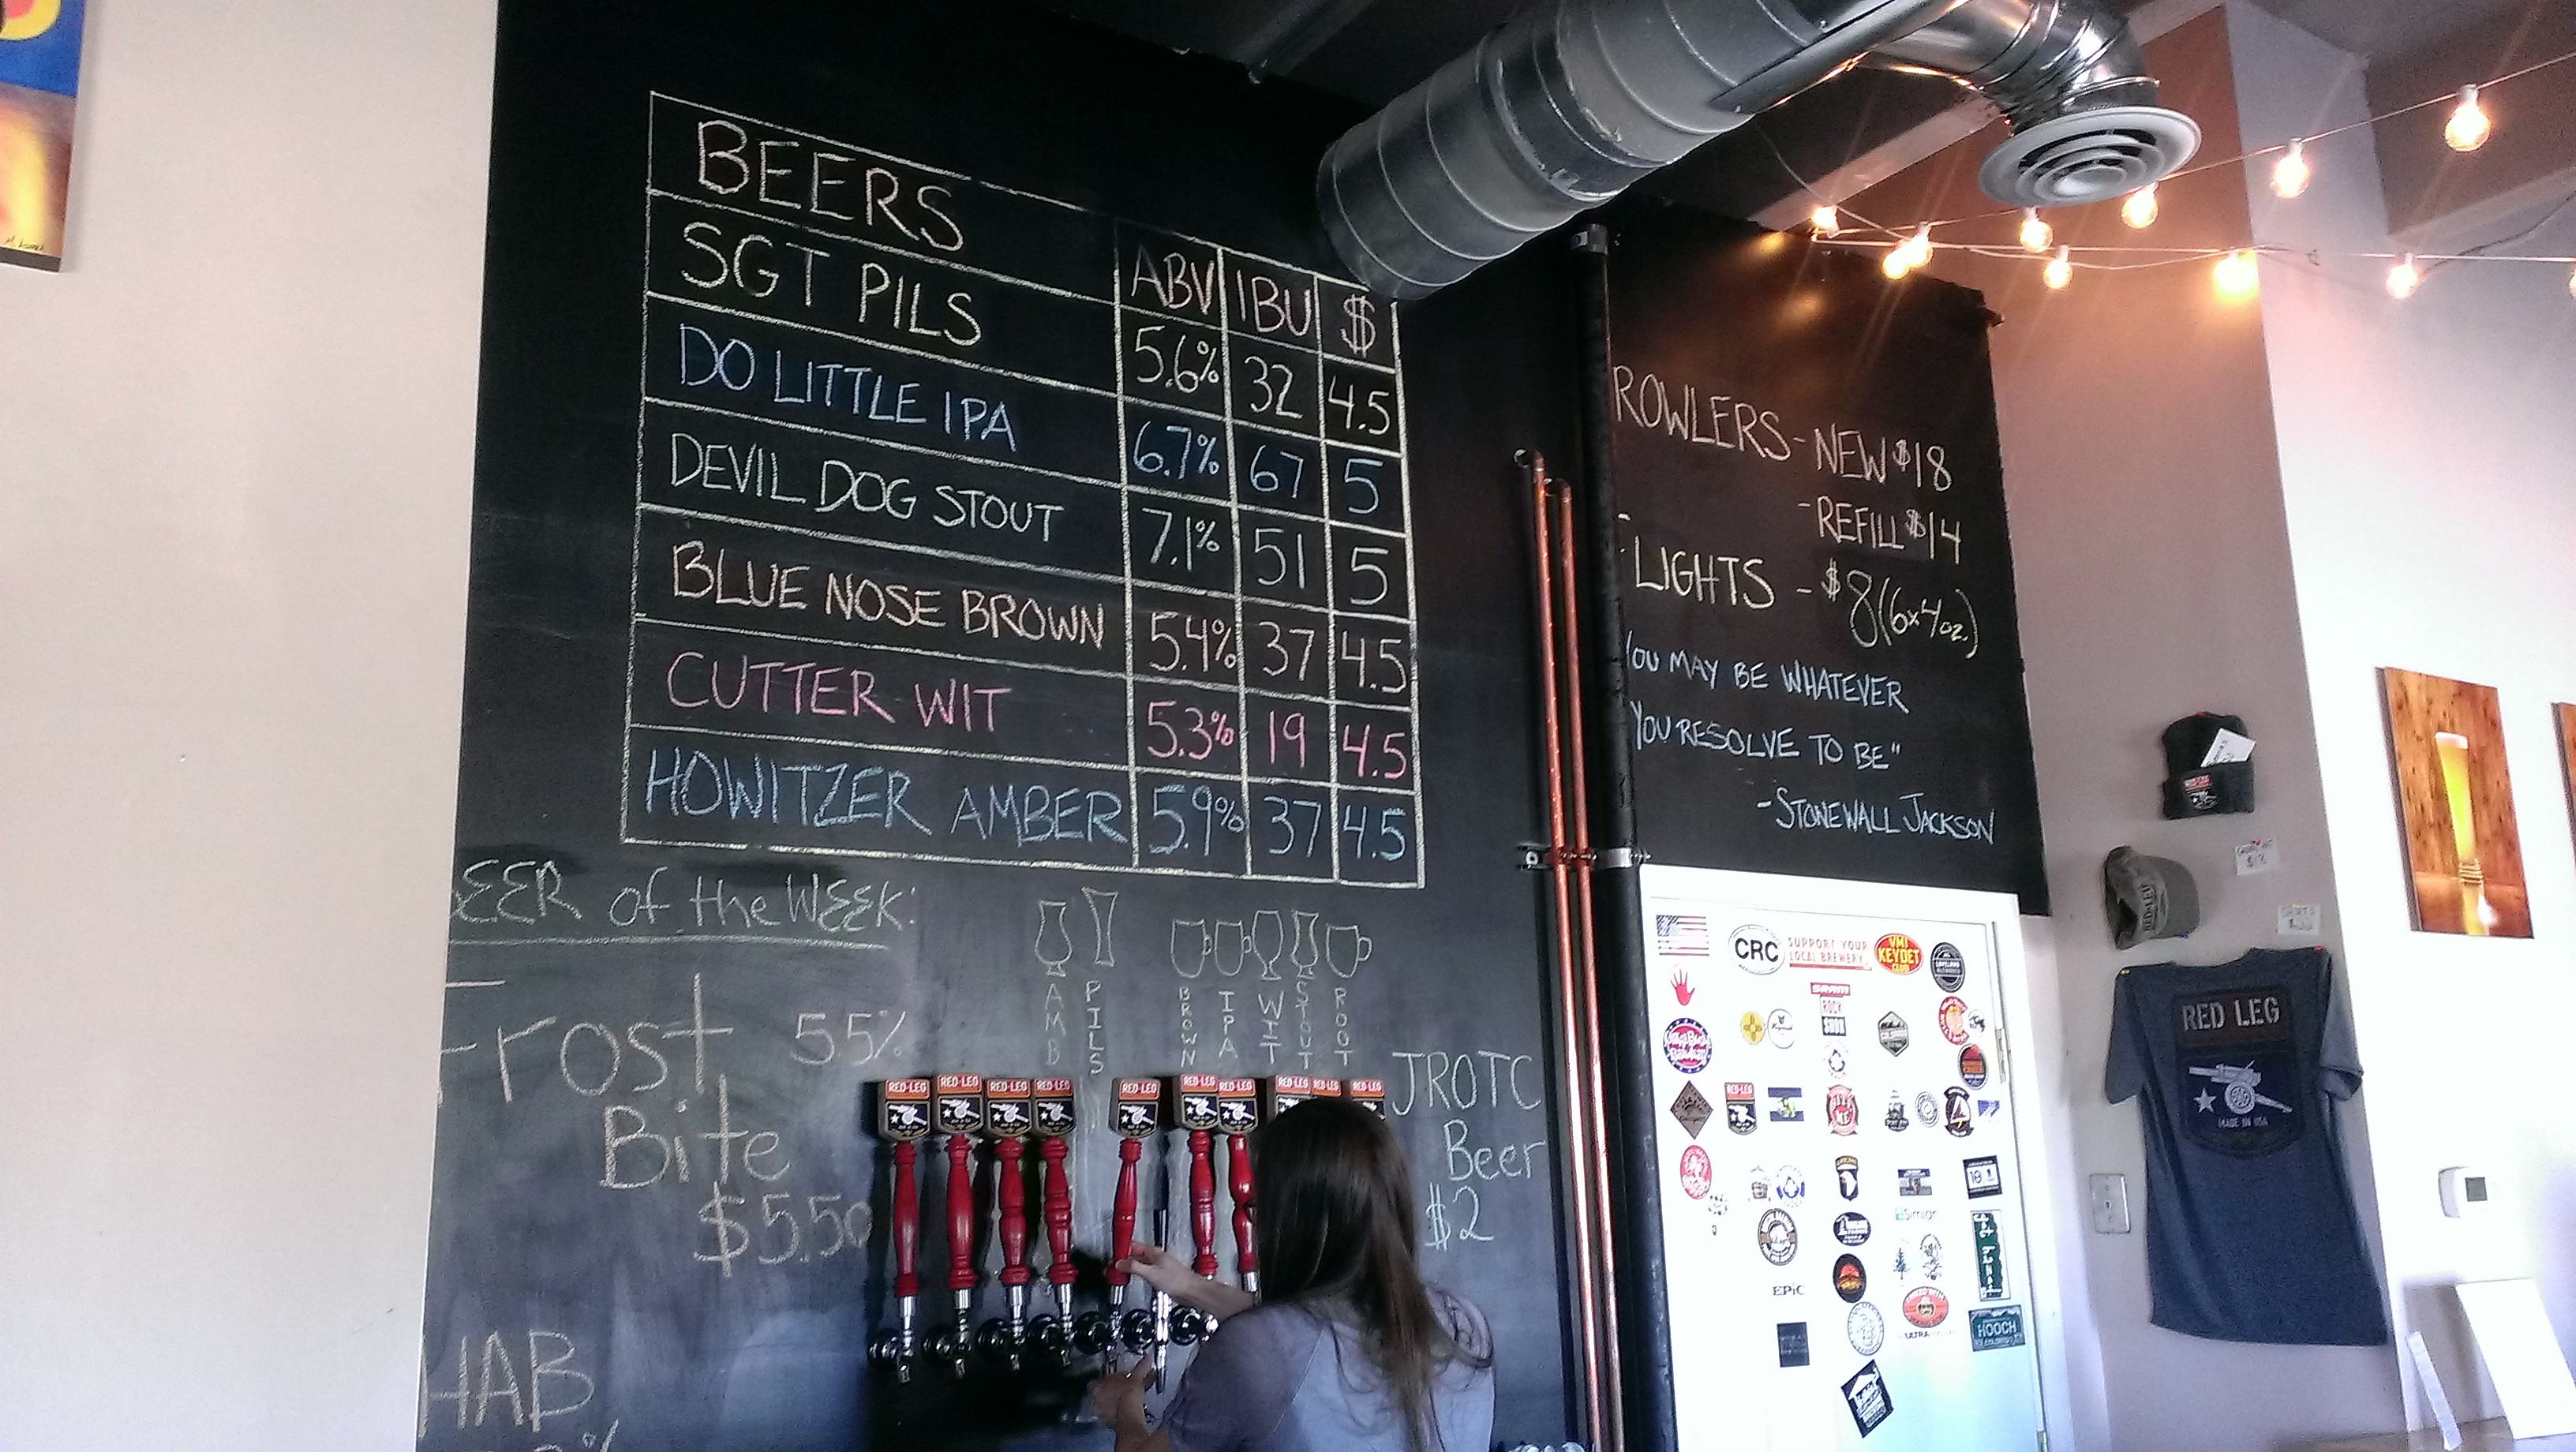 BEERS ABV IBU $
SGT PILS 5.6% 32 4.5
DO LITTLE IPA 6.7% 67 5
DEVIL DOG STOUT 7.1% 51 5
BLUE NOSE BROWN 5.4% 37 4.5
CUTTER WIT 5.3% 19 4.5
HOWITZER AMBER 5.9% 37 4.5
EER of the WEEK:
Frost 55%
Bite
$5.50
HAB
AMB
PILS
BROWN
IPA
WIT
STOUT
ROOT
JROTC
Beer
$2
RED LEG
RED LEG
RED LEG
RED LEG
RED LEG
RED LEG
RED LEG
RED LEG
RED LEG
RED LEG
ROWLERS - NEW $18
- REFILL $14
LIGHTS - $8 (6x4oz.)
YOU MAY BE WHATEVER
YOU RESOLVE TO BE"
- STONEWALL JACKSON
CRC
SUPPORT YOUR
LOCAL BREWERY
VMI
KEYDET
CLUB
SRAM
ROCK
SHOX
RED LEG
Simian
EPIC
ULTRA
HOOCH
$18
RED LEG
MADE IN USA